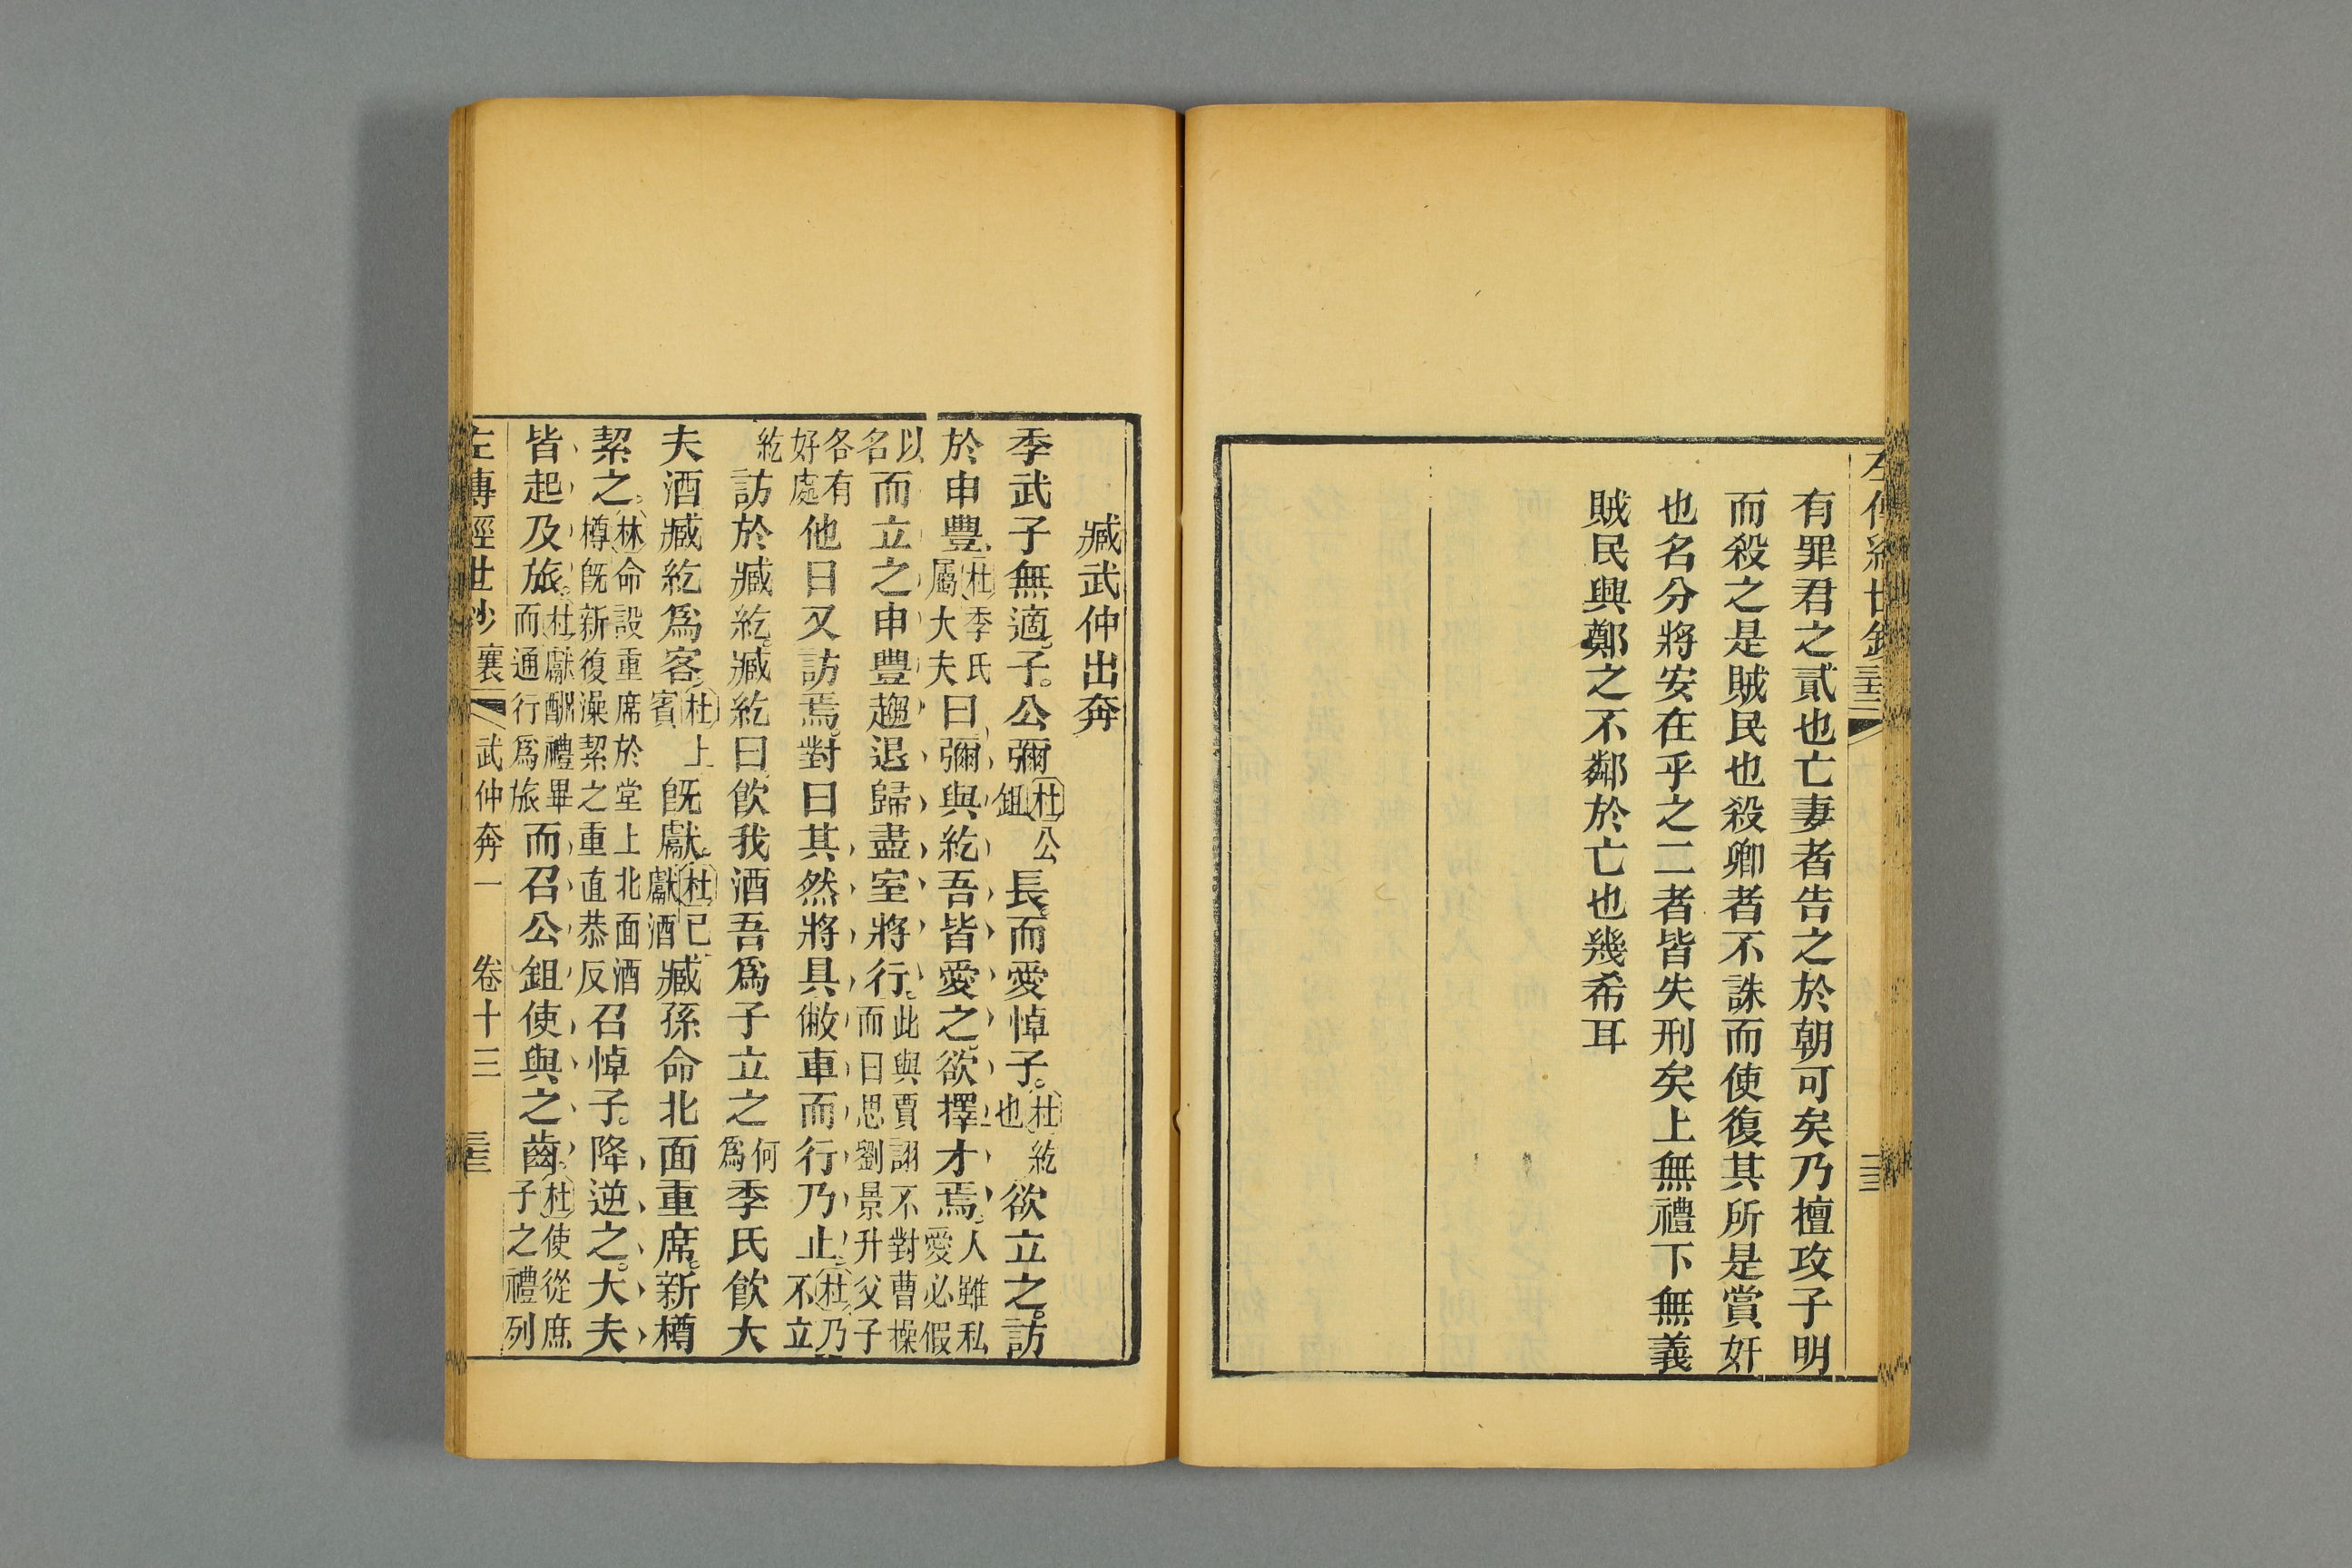 有罪君之貳也亡妻者告之於朝可矣乃擅攻子明
而殺之是賊民也殺卿者不誅而使復其所是賞奸
也名分將安在乎之二者皆失刑矣上無禮下無義
賊民興鄭之不鄰於亡也幾希耳
臧武仲出奔
季武子無適子。公彌杜公鉏長而愛悼子。杜紇也欲立之。訪
於申豐杜季氏屬大夫曰彌與紇吾皆愛之欲擇才焉。人雖私愛必假
以名而立之申豐趨退歸盡室將行。此與賈詡不對曹操而曰思劉景升父子
各有好處他日又訪焉。對曰其然將具敝車而行乃止。杜乃不立
紇訪於臧紇。臧紇曰飲我酒吾爲子立之何爲季氏飲大
夫酒臧紇爲客。杜上賓旣獻。杜已獻酒臧孫命北面重席。新樽
絜之。林命設重席於堂上北面酒樽旣新復澡絜之重直恭反召悼子。降逆之。大夫
皆起及旅。杜獻酬禮畢而通行爲旅而召公鉏使與之齒。杜使從庶子之禮列
左傳經世鈔 襄 武仲奔一 卷十三